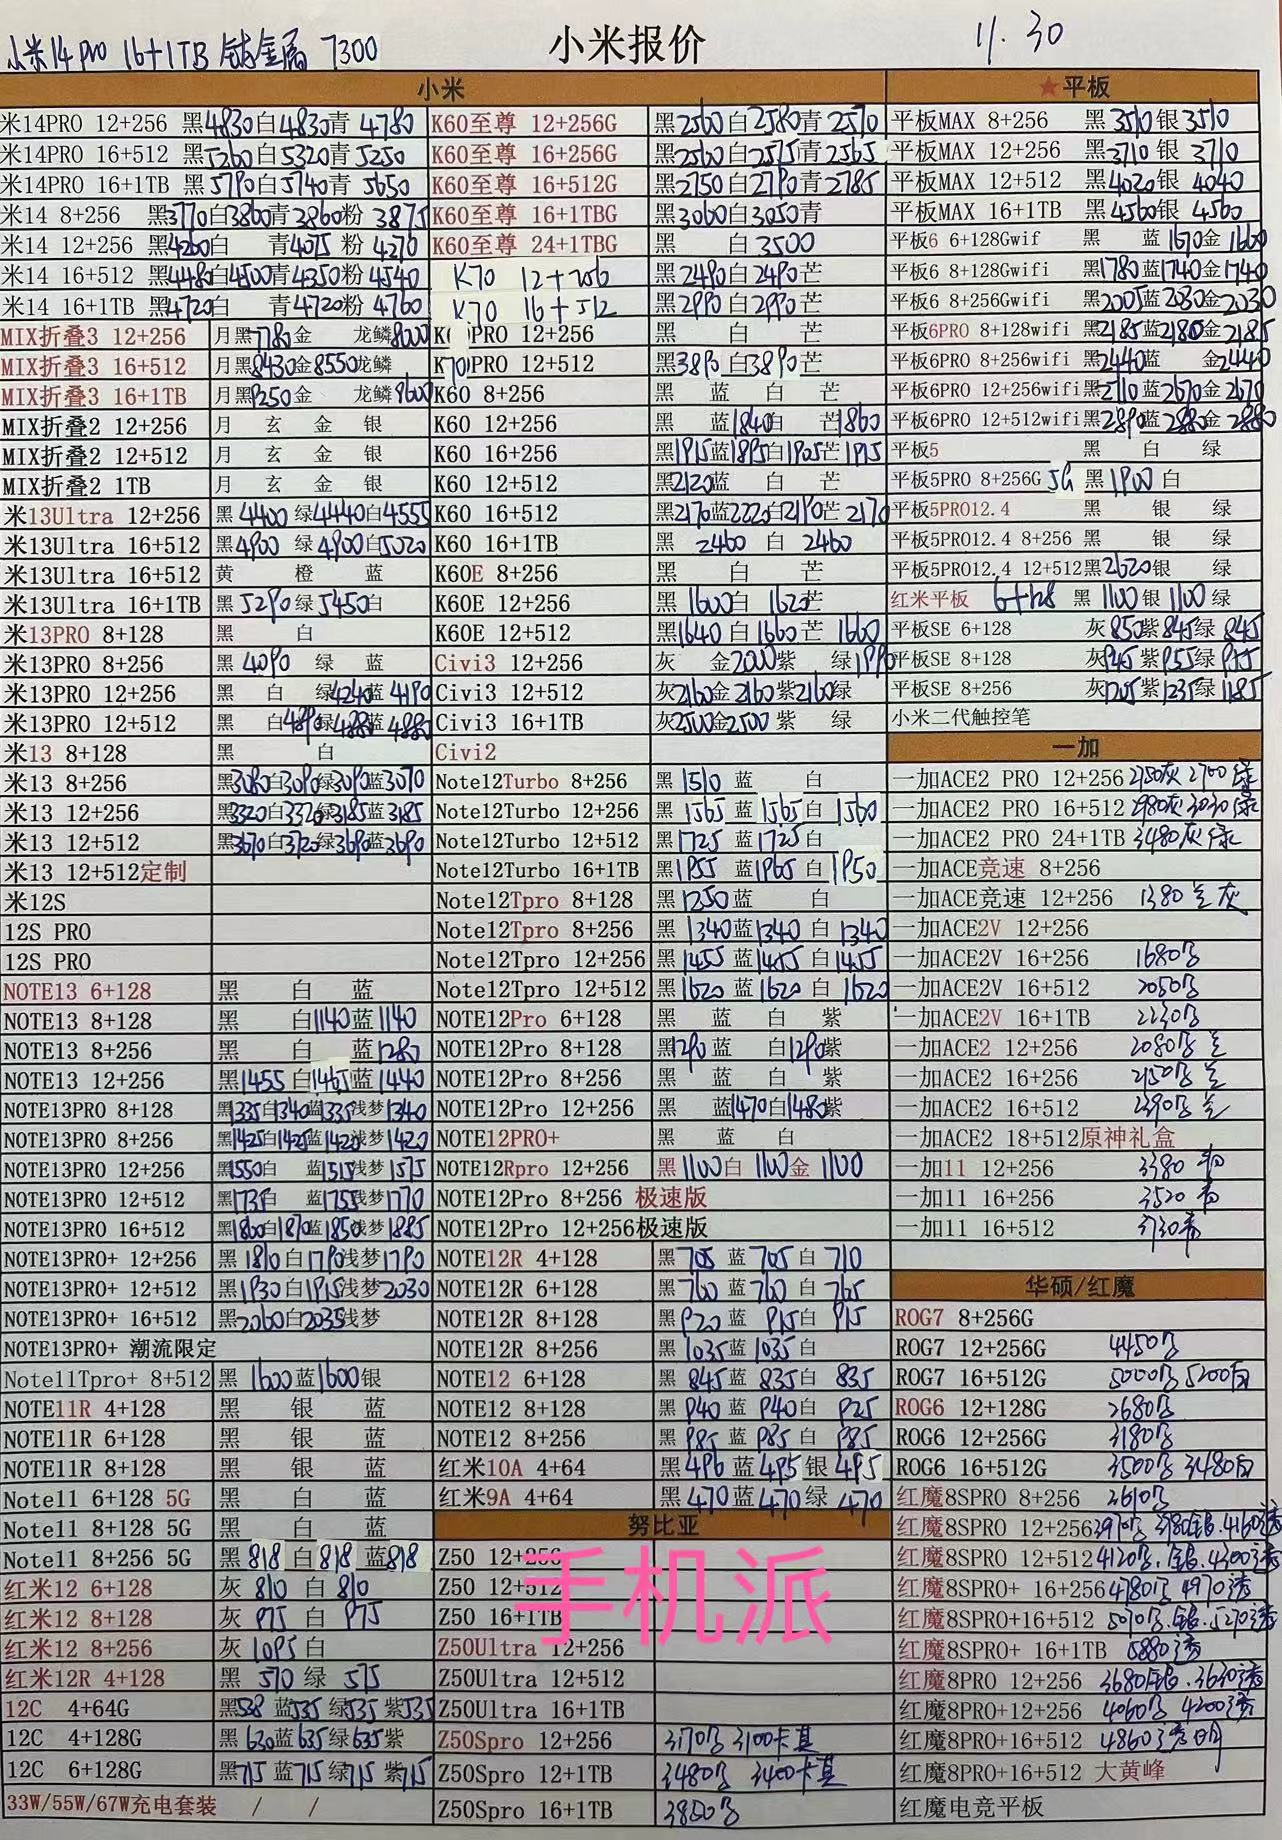 小米14pro 16+1TB 钛金属 7300
小米报价
11.30
小米
米14PRO 12+256 黑4830白4830青 4780
米14PRO 16+512 黑5260白5320青 5250
米14PRO 16+1TB 黑5790白5740青 5650
米14 8+256 黑3770白3860青3860粉 3875
米14 12+256 黑4260白 青4075 粉 4270
米14 16+512 黑4480白4500青4350粉 4540
米14 16+1TB 黑4720白 青4720粉 4760
MIX折叠3 12+256 月黑7780金 龙鳞8000
MIX折叠3 16+512 月黑8430金8550龙鳞
MIX折叠3 16+1TB 月黑9250金 龙鳞9600
MIX折叠2 12+256 月 玄 金 银
MIX折叠2 12+512 月 玄 金 银
MIX折叠2 1TB 月 玄 金 银
米13Ultra 12+256 黑 4400 绿4440白4555
米13Ultra 16+512 黑4900 绿4900白5020
米13Ultra 16+512 黄 橙 蓝
米13Ultra 16+1TB 黑 5290绿5450白
米13PRO 8+128 黑 白
米13PRO 8+256 黑 4090 绿 蓝
米13PRO 12+256 黑 白 绿4240蓝 4190
米13PRO 12+512 黑 白4890绿4880蓝 4880
米13 8+128 黑 白
米13 8+256 黑3080白3090绿3090蓝3070
米13 12+256 黑3320白3320绿3185蓝3185
米13 12+512 黑3670白3720绿3690蓝3690
米13 12+512定制
米12S
12S PRO
12S PRO
NOTE13 6+128 黑 白 蓝
NOTE13 8+128 黑 白1140蓝1140
NOTE13 8+256 黑 白 蓝1280
NOTE13 12+256 黑1455 白1465蓝1440
NOTE13PRO 8+128 黑1335白1340蓝1335浅梦1340
NOTE13PRO 8+256 黑1425白1425蓝1420浅梦1420
NOTE13PRO 12+256 黑1550白 蓝1515浅梦1575
NOTE13PRO 12+512 黑1735白 蓝1755浅梦1770
NOTE13PRO 16+512 黑1860白1870蓝1850浅梦1885
NOTE13PRO+ 12+256 黑 1810白1790浅梦1790
NOTE13PRO+ 12+512 黑1930白1915浅梦2030
NOTE13PRO+ 16+512 黑2060白2035浅梦
NOTE13PRO+ 潮流限定
Note11Tpro+ 8+512 黑 1600蓝1600银
NOTE11R 4+128 黑 银 蓝
NOTE11R 6+128 黑 银 蓝
NOTE11R 8+128 黑 银 蓝
Note11 6+128 5G 黑 白 蓝
Note11 8+128 5G 黑 白 蓝
Note11 8+256 5G 黑 818 白 818 蓝818
红米12 6+128 灰 810 白 810
红米12 8+128 灰 975 白 975
红米12 8+256 灰 1095白
红米12R 4+128 黑 570 绿 575
12C 4+64G 黑538 蓝535 绿535 紫535
12C 4+128G 黑630蓝635绿635紫
12C 6+128G 黑715 蓝715绿715 紫715
33W/55W/67W充电套装 / /
K60至尊 12+256G 黑2560白2580青2570
K60至尊 16+256G 黑2560白2575青2565
K60至尊 16+512G 黑2750白2790青2785
K60至尊 16+1TBG 黑3060白3050青
K60至尊 24+1TBG 黑 白3500
K70 12+256 黑2490白2490芒
K70 16+512 黑2990白2990芒
PRO 12+256 黑 白 芒
K70PRO 12+512 黑3890白3890芒
K60 8+256 黑 蓝 白 芒
K60 12+256 黑 蓝1840白 芒1860
K60 16+256 黑1915蓝1895白1905芒1915
K60 12+512 黑2120蓝 白 芒
K60 16+512 黑2170蓝2220白2190芒2170
K60 16+1TB 黑 2460 白 2460
K60E 8+256 黑 白 芒
K60E 12+256 黑1600白 1620芒
K60E 12+512 黑1640 白1660芒 1660
Civi3 12+256 灰 金2000紫 绿1990
Civi3 12+512 灰2160金2160紫2160绿
Civi3 16+1TB 灰2500金2500 紫 绿
Civi2
Note12Turbo 8+256 黑 1510 蓝 白
Note12Turbo 12+256 黑 1565 蓝1565白 1560
Note12Turbo 12+512 黑1725 蓝1725白
Note12Turbo 16+1TB 黑1955 蓝1965 白 1950
Note12Tpro 8+128 黑1250蓝 白
Note12Tpro 8+256 黑 1340蓝1340 白 1340
Note12Tpro 12+256 黑1455 蓝1455 白1455
Note12Tpro 12+512 黑1620 蓝1620 白 1620
NOTE12Pro 6+128 黑 蓝 白 紫
NOTE12Pro 8+128 黑1290蓝 白1290紫
NOTE12Pro 8+256 黑 蓝 白 紫
NOTE12Pro 12+256 黑 蓝1470白1480紫
NOTE12PRO+ 黑 蓝 白
NOTE12Rpro 12+256 黑1100白 1100金 1100
NOTE12Pro 8+256 极速版
NOTE12Pro 12+256极速版
NOTE12R 4+128 黑 705 蓝 705 白 710
NOTE12R 6+128 黑 760 蓝 760 白 765
NOTE12R 8+128 黑 920 蓝 915白 915
NOTE12R 8+256 黑 1035蓝1035白
NOTE12 6+128 黑 845 蓝 835白 835
NOTE12 8+128 黑 940 蓝 940白 925
NOTE12 8+256 黑 985 蓝 985 白 985
红米10A 4+64 黑 496 蓝 495 银 495
红米9A 4+64 黑 470蓝470绿 470
努比亚
Z50 12+256
Z50 12+512
Z50 16+1TB
Z50Ultra 12+256
Z50Ultra 12+512
Z50Ultra 16+1TB
Z50Spro 12+256 3170 3100卡其
Z50Spro 12+1TB 3480 3400卡其
Z50Spro 16+1TB 3800
★平板
平板MAX 8+256 黑 3510银3510
平板MAX 12+256 黑3710 银 3710
平板MAX 12+512 黑4020银 4040
平板MAX 16+1TB 黑 4560银 4560
平板6 6+128Gwif 黑 蓝1670金1660
平板6 8+128Gwifi 黑1780蓝1740金1740
平板6 8+256Gwifi 黑2005蓝2030金2030
平板6PRO 8+128wifi 黑2185蓝2180金2185
平板6PRO 8+256wifi 黑2440蓝 金2440
平板6PRO 12+256wifi黑2710蓝2670金2670
平板6PRO 12+512wifi黑2890蓝2880金2880
平板5 黑 白 绿
平板5PRO 8+256G 5G 黑1900白
平板5PRO12.4 黑 银 绿
平板5PRO12.4 8+256 黑 银 绿
平板5PRO12.4 12+512黑2620银 绿
红米平板 6+128 黑 1100银1100绿
平板SE 6+128 灰850紫845绿 845
平板SE 8+128 灰945紫955绿975
平板SE 8+256 灰1205紫1235绿1185
小米二代触控笔
一加
一加ACE2 PRO 12+256 2750灰 2700绿
一加ACE2 PRO 16+512 2980灰3030绿
一加ACE2 PRO 24+1TB 3480灰绿
一加ACE竞速 8+256
一加ACE竞速 12+256 1380 兰灰
一加ACE2V 12+256
一加ACE2V 16+256 1680
一加ACE2V 16+512 2050
一加ACE2V 16+1TB 2230
一加ACE2 12+256 2080 兰
一加ACE2 16+256 2150 兰
一加ACE2 16+512 2390 兰
一加ACE2 18+512原神礼盒
一加11 12+256 3380
一加11 16+256 3520
一加11 16+512 3730
华硕/红魔
ROG7 8+256G
ROG7 12+256G 4450
ROG7 16+512G 5000 5200白
ROG6 12+128G 2680
ROG6 12+256G 3180
ROG6 16+512G 3500 3480白
红魔8SPRO 8+256 3610
红魔8SPRO 12+256 3970 3980银.4160透
红魔8SPRO 12+512 4120.银.4300透
红魔8SPRO+ 16+256 4780 4970透
红魔8SPRO+16+512 5070.银.5270透
红魔8SPRO+ 16+1TB 5880透
红魔8PRO 12+256 3680银.3630透
红魔8PRO+12+256 4060 4200透
红魔8PRO+16+512 4860透明
红魔8PRO+16+512 大黄峰
红魔电竞平板
手机派